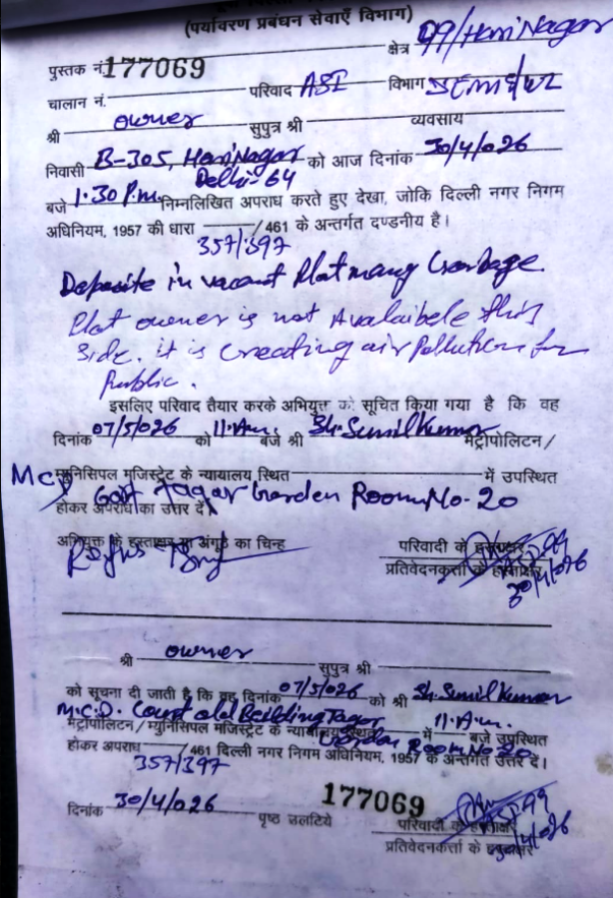 (पर्यावरण प्रबंधन सेवाएँ विभाग)
पुस्तक नं. 177069 क्षेत्र 99/Hari Nagar
चालान नं. परिवाद ASI विभाग DEMS/WZ
श्री owner सुपुत्र श्री व्यवसाय
निवासी B-305, Hari Nagar को आज दिनांक 30/4/026
Delhi-64
बजे 1.30 P.m. निम्नलिखित अपराध करते हुए देखा, जोकि दिल्ली नगर निगम
अधिनियम, 1957 की धारा /461 के अन्तर्गत दण्डनीय है।
357/397
Deposite in vacant Plot many Garbage.
Plot owner is not Avalaibele this
Side. it is creating air Pollution for
Public.
इसलिए परिवाद तैयार करके अभियुक्त को सूचित किया गया है कि वह
दिनांक 07/5/026 को 11.Am. बजे श्री Sh. Sunil Kumar मैट्रोपोलिटन/
MCD म्युनिसिपल मजिस्ट्रेट के न्यायालय स्थित में उपस्थित
Tagar Garden Room No-20
होकर अपराध का उत्तर दें।
अभियुक्त के हस्ताक्षर या अंगूठे का चिन्ह परिवादी के हस्ताक्षर
प्रतिवेदनकर्त्ता के हस्ताक्षर
30/4/026
श्री owner सुपुत्र श्री
को सूचना दी जाती है कि वह दिनांक 07/5/026 को श्री Sh. Sunil Kumar
M.C.D. Court old Building Tagor 11.A.m.
मैट्रोपोलिटन/म्युनिसिपल मजिस्ट्रेट के न्यायालय स्थित में बजे उपस्थित
Garden Room No 20
होकर अपराध /461 दिल्ली नगर निगम अधिनियम, 1957 के अन्तर्गत उत्तर दें।
357/397
दिनांक 30/4/026 पृष्ठ उलटिये 177069 परिवादी के हस्ताक्षर
प्रतिवेदनकर्त्ता के हस्ताक्षर